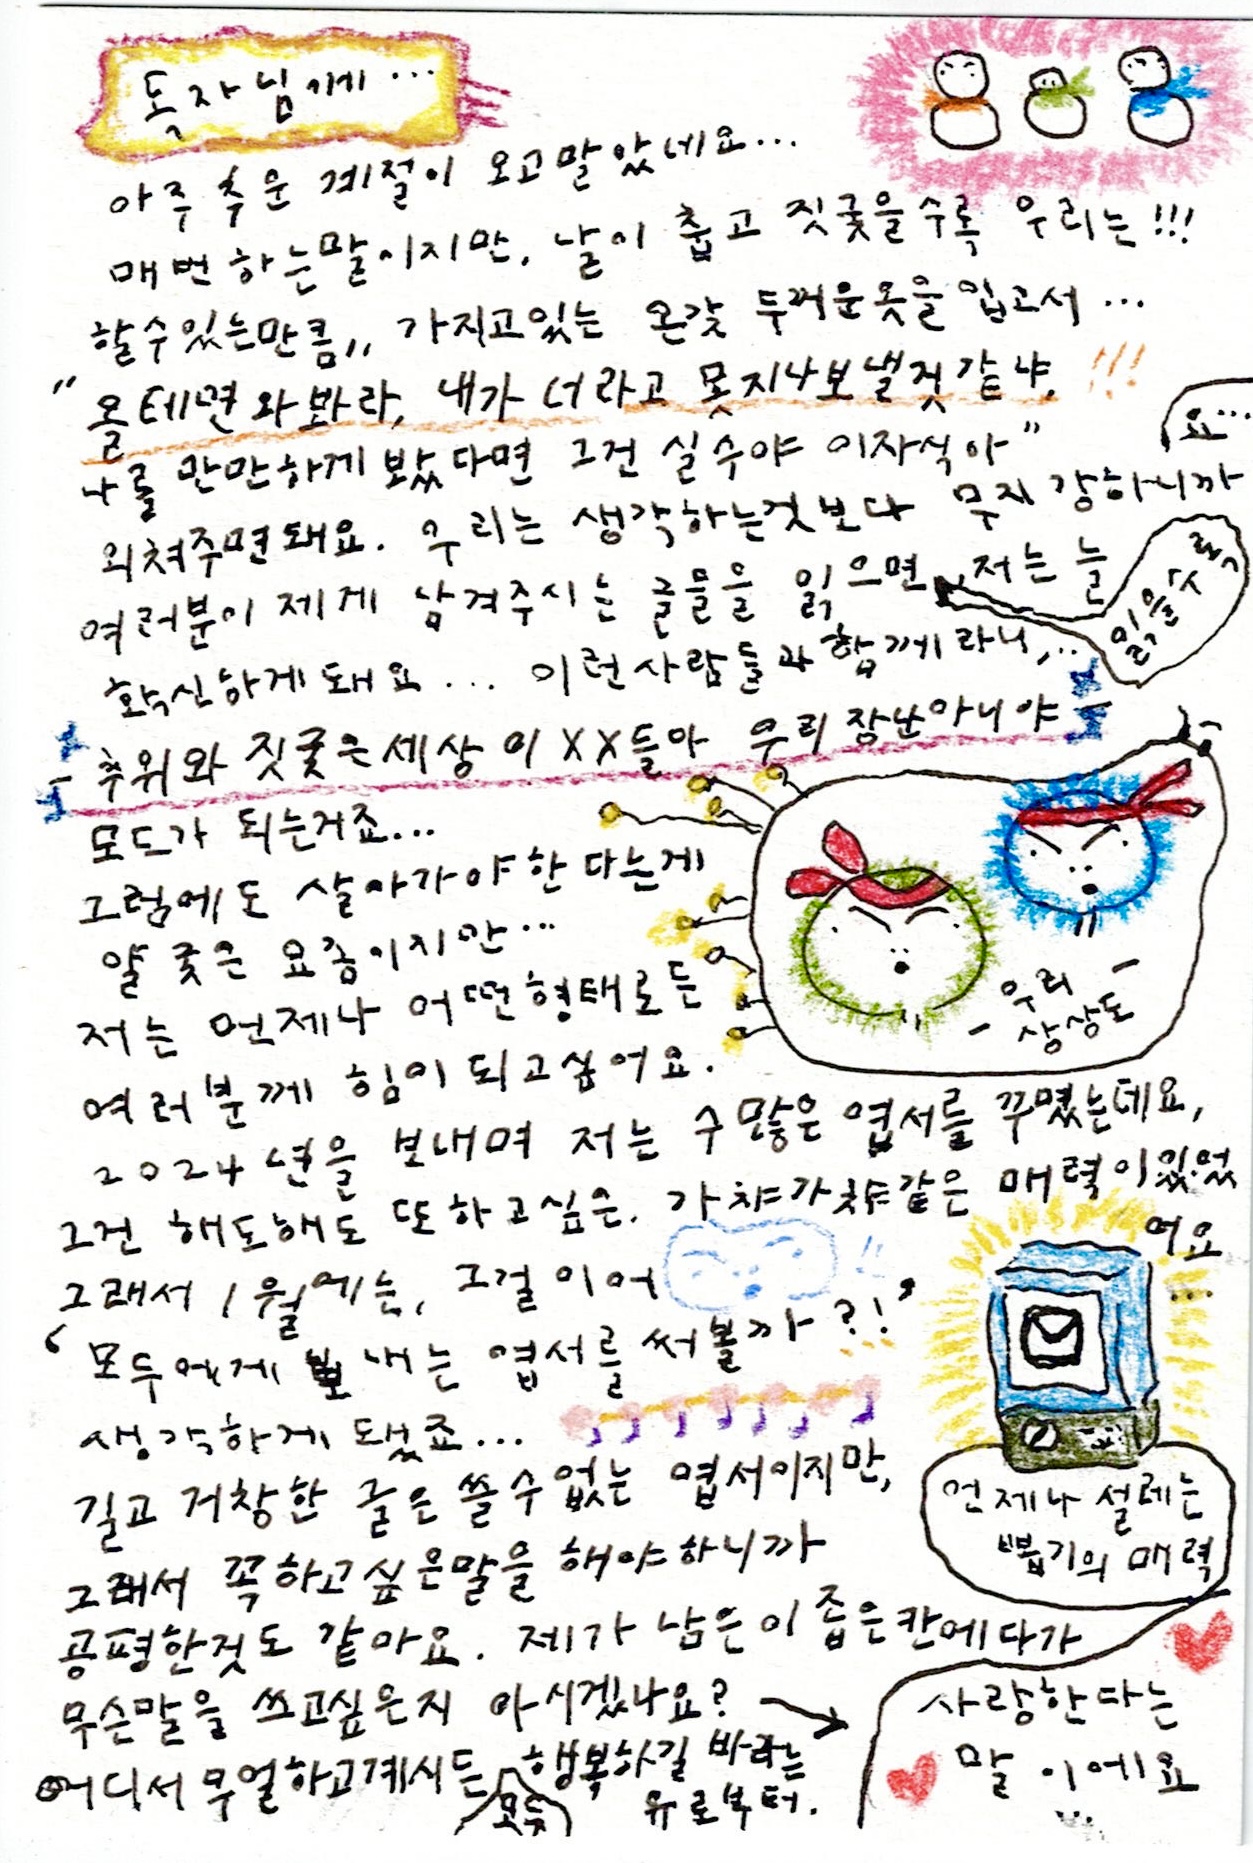 독자님께...
아주 추운 계절이 오고말았네요...
매번 하는말이지만, 날이 춥고 짓궂을수록 우리는!!!
할수있는만큼,, 가지고있는 온갖 두꺼운옷을 입고서...
"올테면 와봐라, 내가 너라고 못지나보낼것같냐, !!!
나를 만만하게 봤다면 그건 실수야 이자식아"
외쳐주면돼요. 우리는 생각하는것보다 무지 강하니까
요...
여러분이 제게 남겨주시는 글들을 읽으면, 저는 늘
읽을 때 다시
확신하게돼요... 이런사람들과 함께라니,..
- 추위와 짓궂은세상 이XX들아 우리 장난아니야 -
모드가 되는거죠...
그럼에도 살아가야한다는게
얄궂은 요즘이지만...
저는 언제나 어떤형태로든
여러분께 힘이 되고싶어요.
- 우리
상상도 -
2024년을 보내며 저는 수많은 엽서를 꾸몄는데요,
그건 해도해도 또하고싶은, 가챠가챠같은 매력이있었
어요
...
그래서 1월에는, 그걸 이어 !!
'모두에게 보내는 엽서를 써볼까?!'
생각하게 됐죠...
길고 거창한 글은 쓸수없는 엽서이지만,
그래서 꼭하고싶은말을 해야하니까
언제나 설레는
뽑기의 매력
공평한것도 같아요. 제가 남은 이 좁은칸에다가
무슨말을 쓰고싶은지 아시겠나요?
사랑한다는
말이에요
어디서 무얼하고계시든, 모두 행복하길 바라는
유로부터.